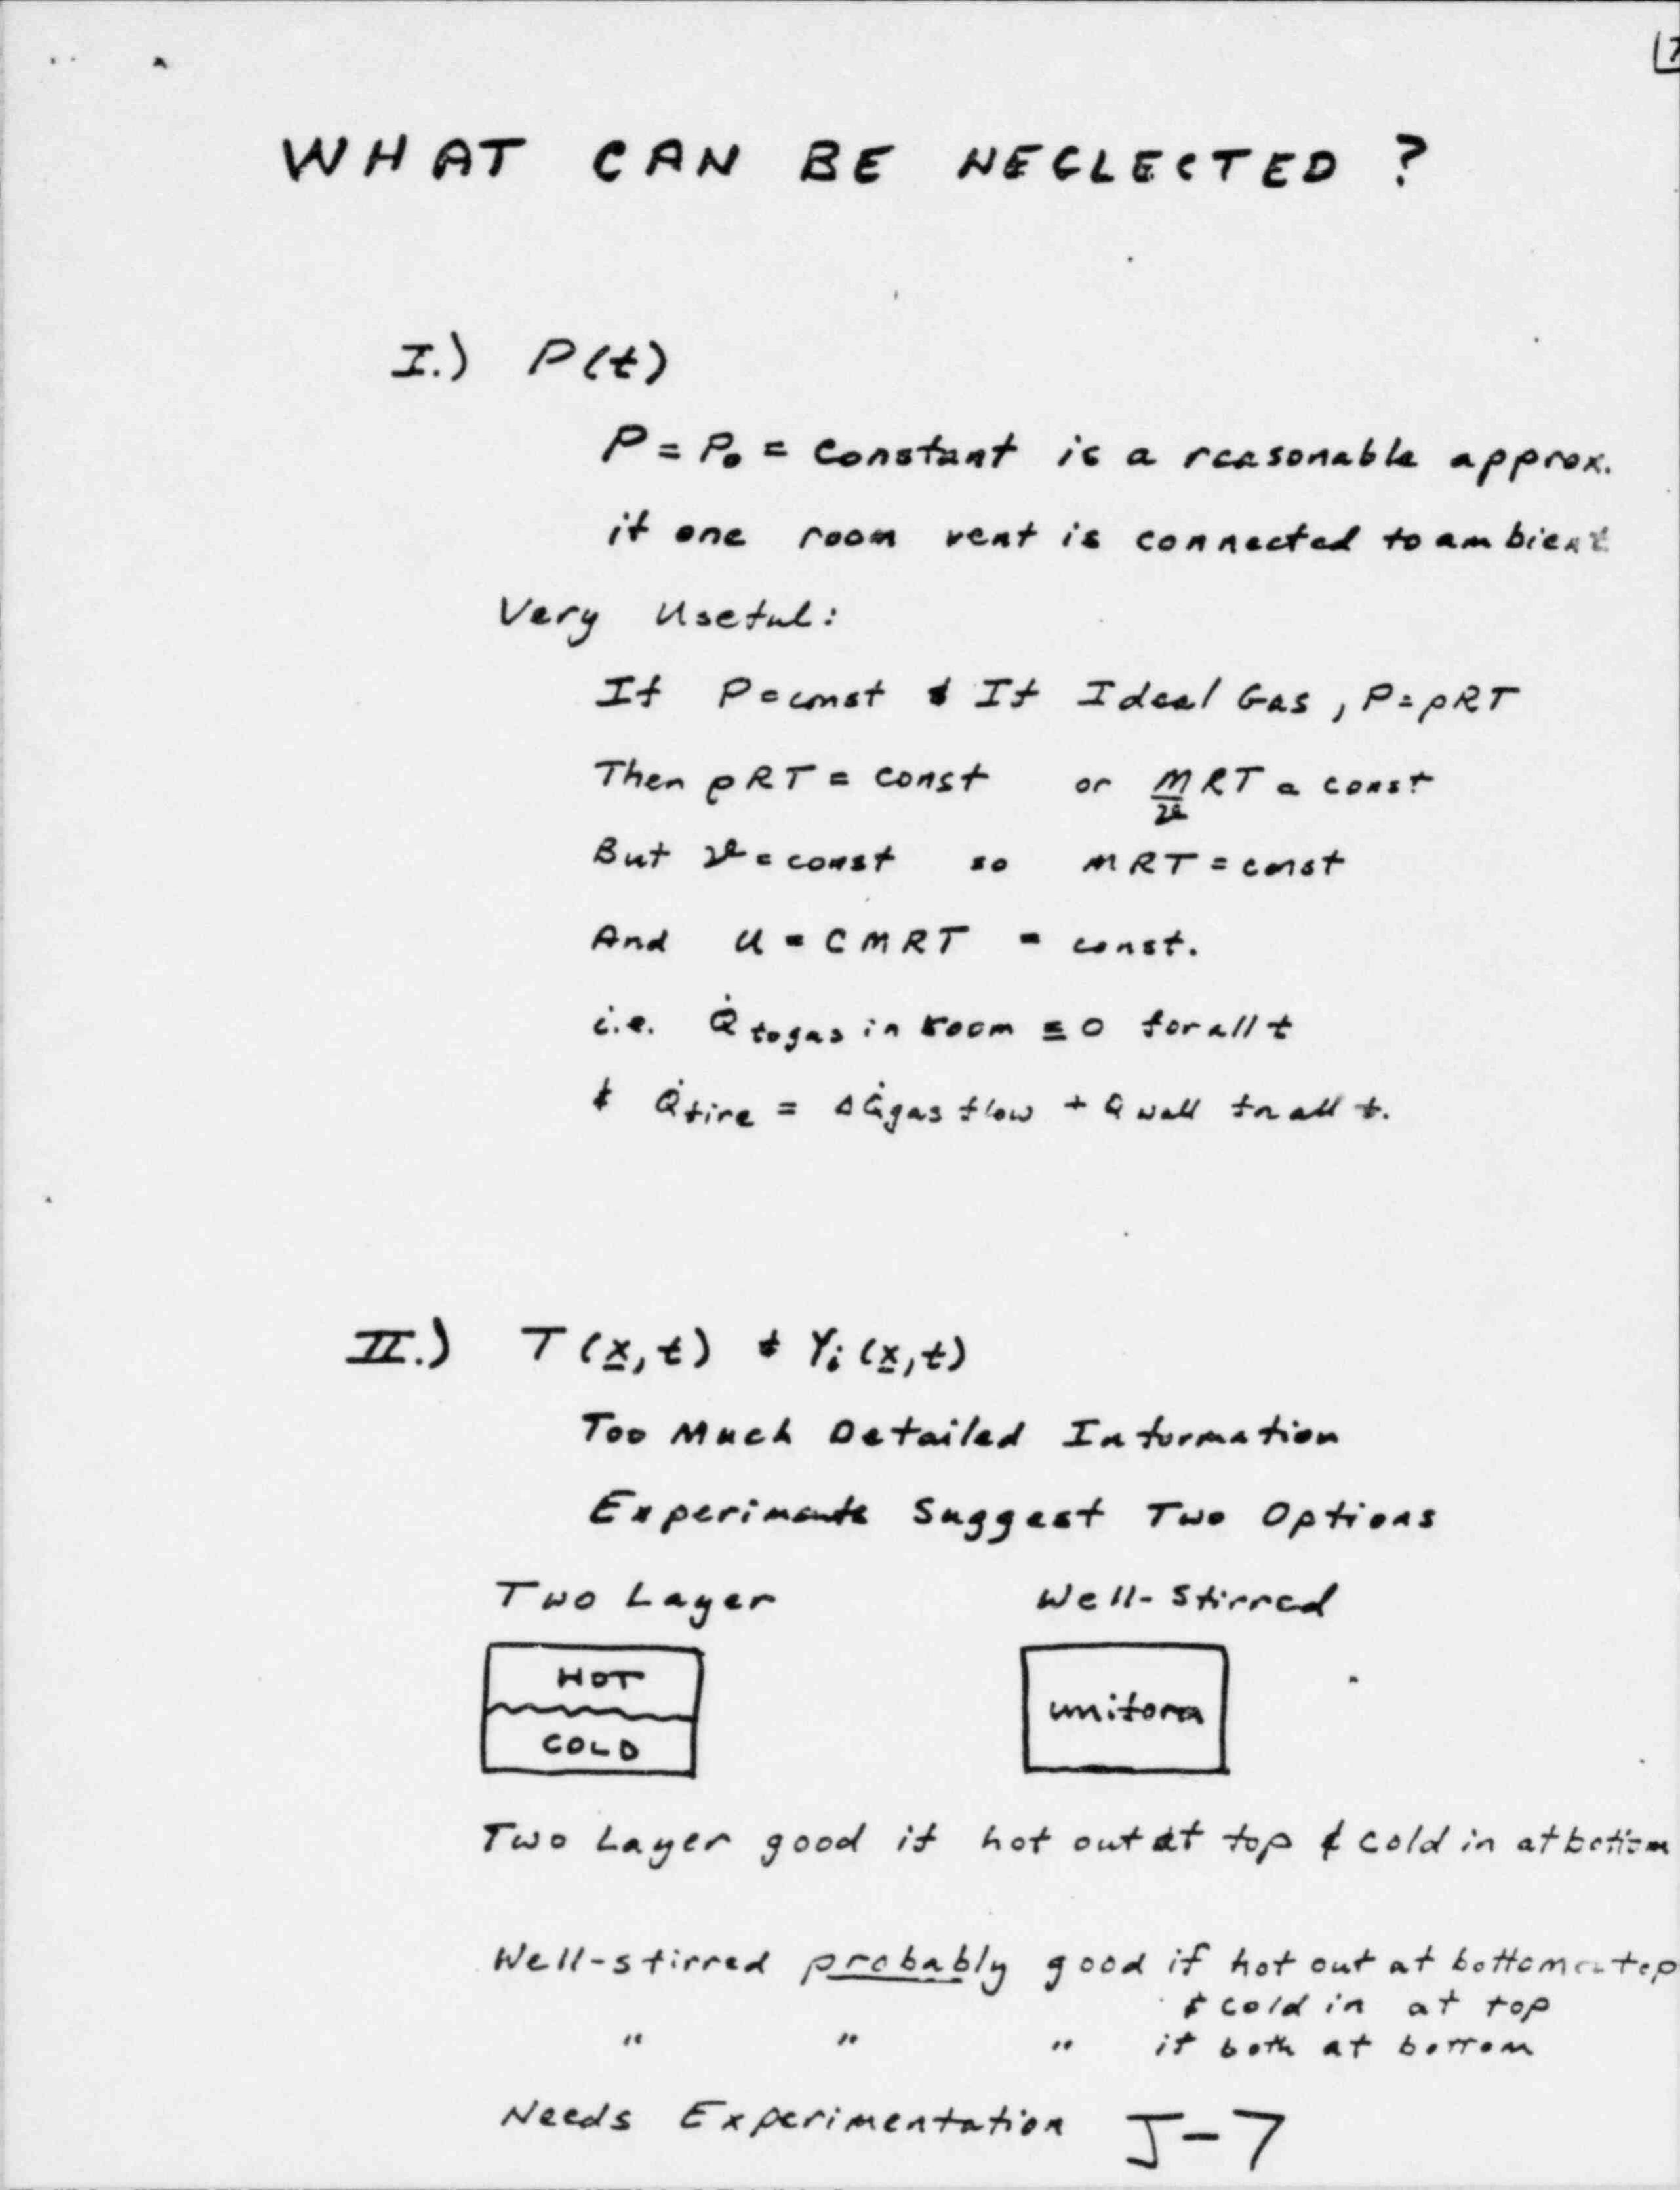 7
WHAT CAN BE NEGLECTED ?
I.) P(t)
P = P₀ = Constant is a reasonable approx.
if one room vent is connected to ambient
Very Useful:
If P = const & If Ideal Gas, P = ρRT
Then ρRT = const or M/V RT = const
But V = const so MRT = const
And U = CMRT = const.
i.e. Q̇ to gas in room ≡ 0 for all t
& Q̇fire = ΔQ̇gas flow + Q̇wall for all t.
II.) T(x,t) & Yi(x,t)
Too Much Detailed Information
Experiments Suggest Two Options
Two Layer Well-Stirred
HOT
COLD
uniform
Two Layer good if hot out at top & cold in at bottom
Well-stirred probably good if hot out at bottom or top
& cold in at top
" " " if both at bottom
Needs Experimentation J-7